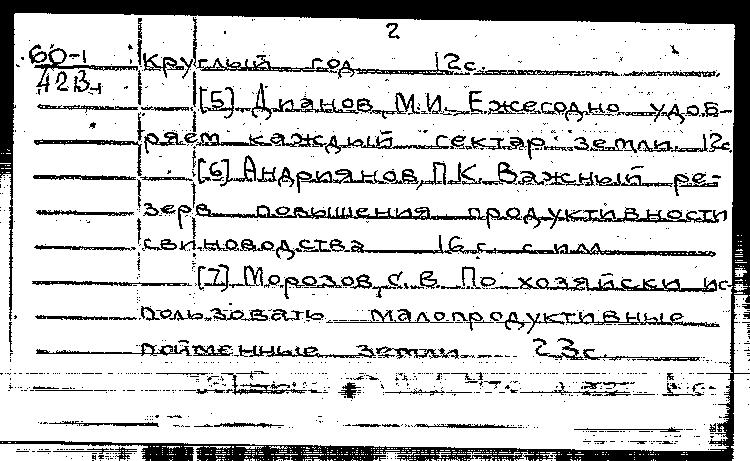 2
60-1 круглый год 12с.
423н
[5] Дианов, М.И. Ежегодно удоб-
ряем каждый гектар земли. 12с
[6] Андриянов, П.К. Важный ре-
зерв повышения продуктивности
свиноводства 16с. с илл
[7] Морозов, С.В. По хозяйски ис-
пользовать малопродуктивные
пойменные земли 23с.